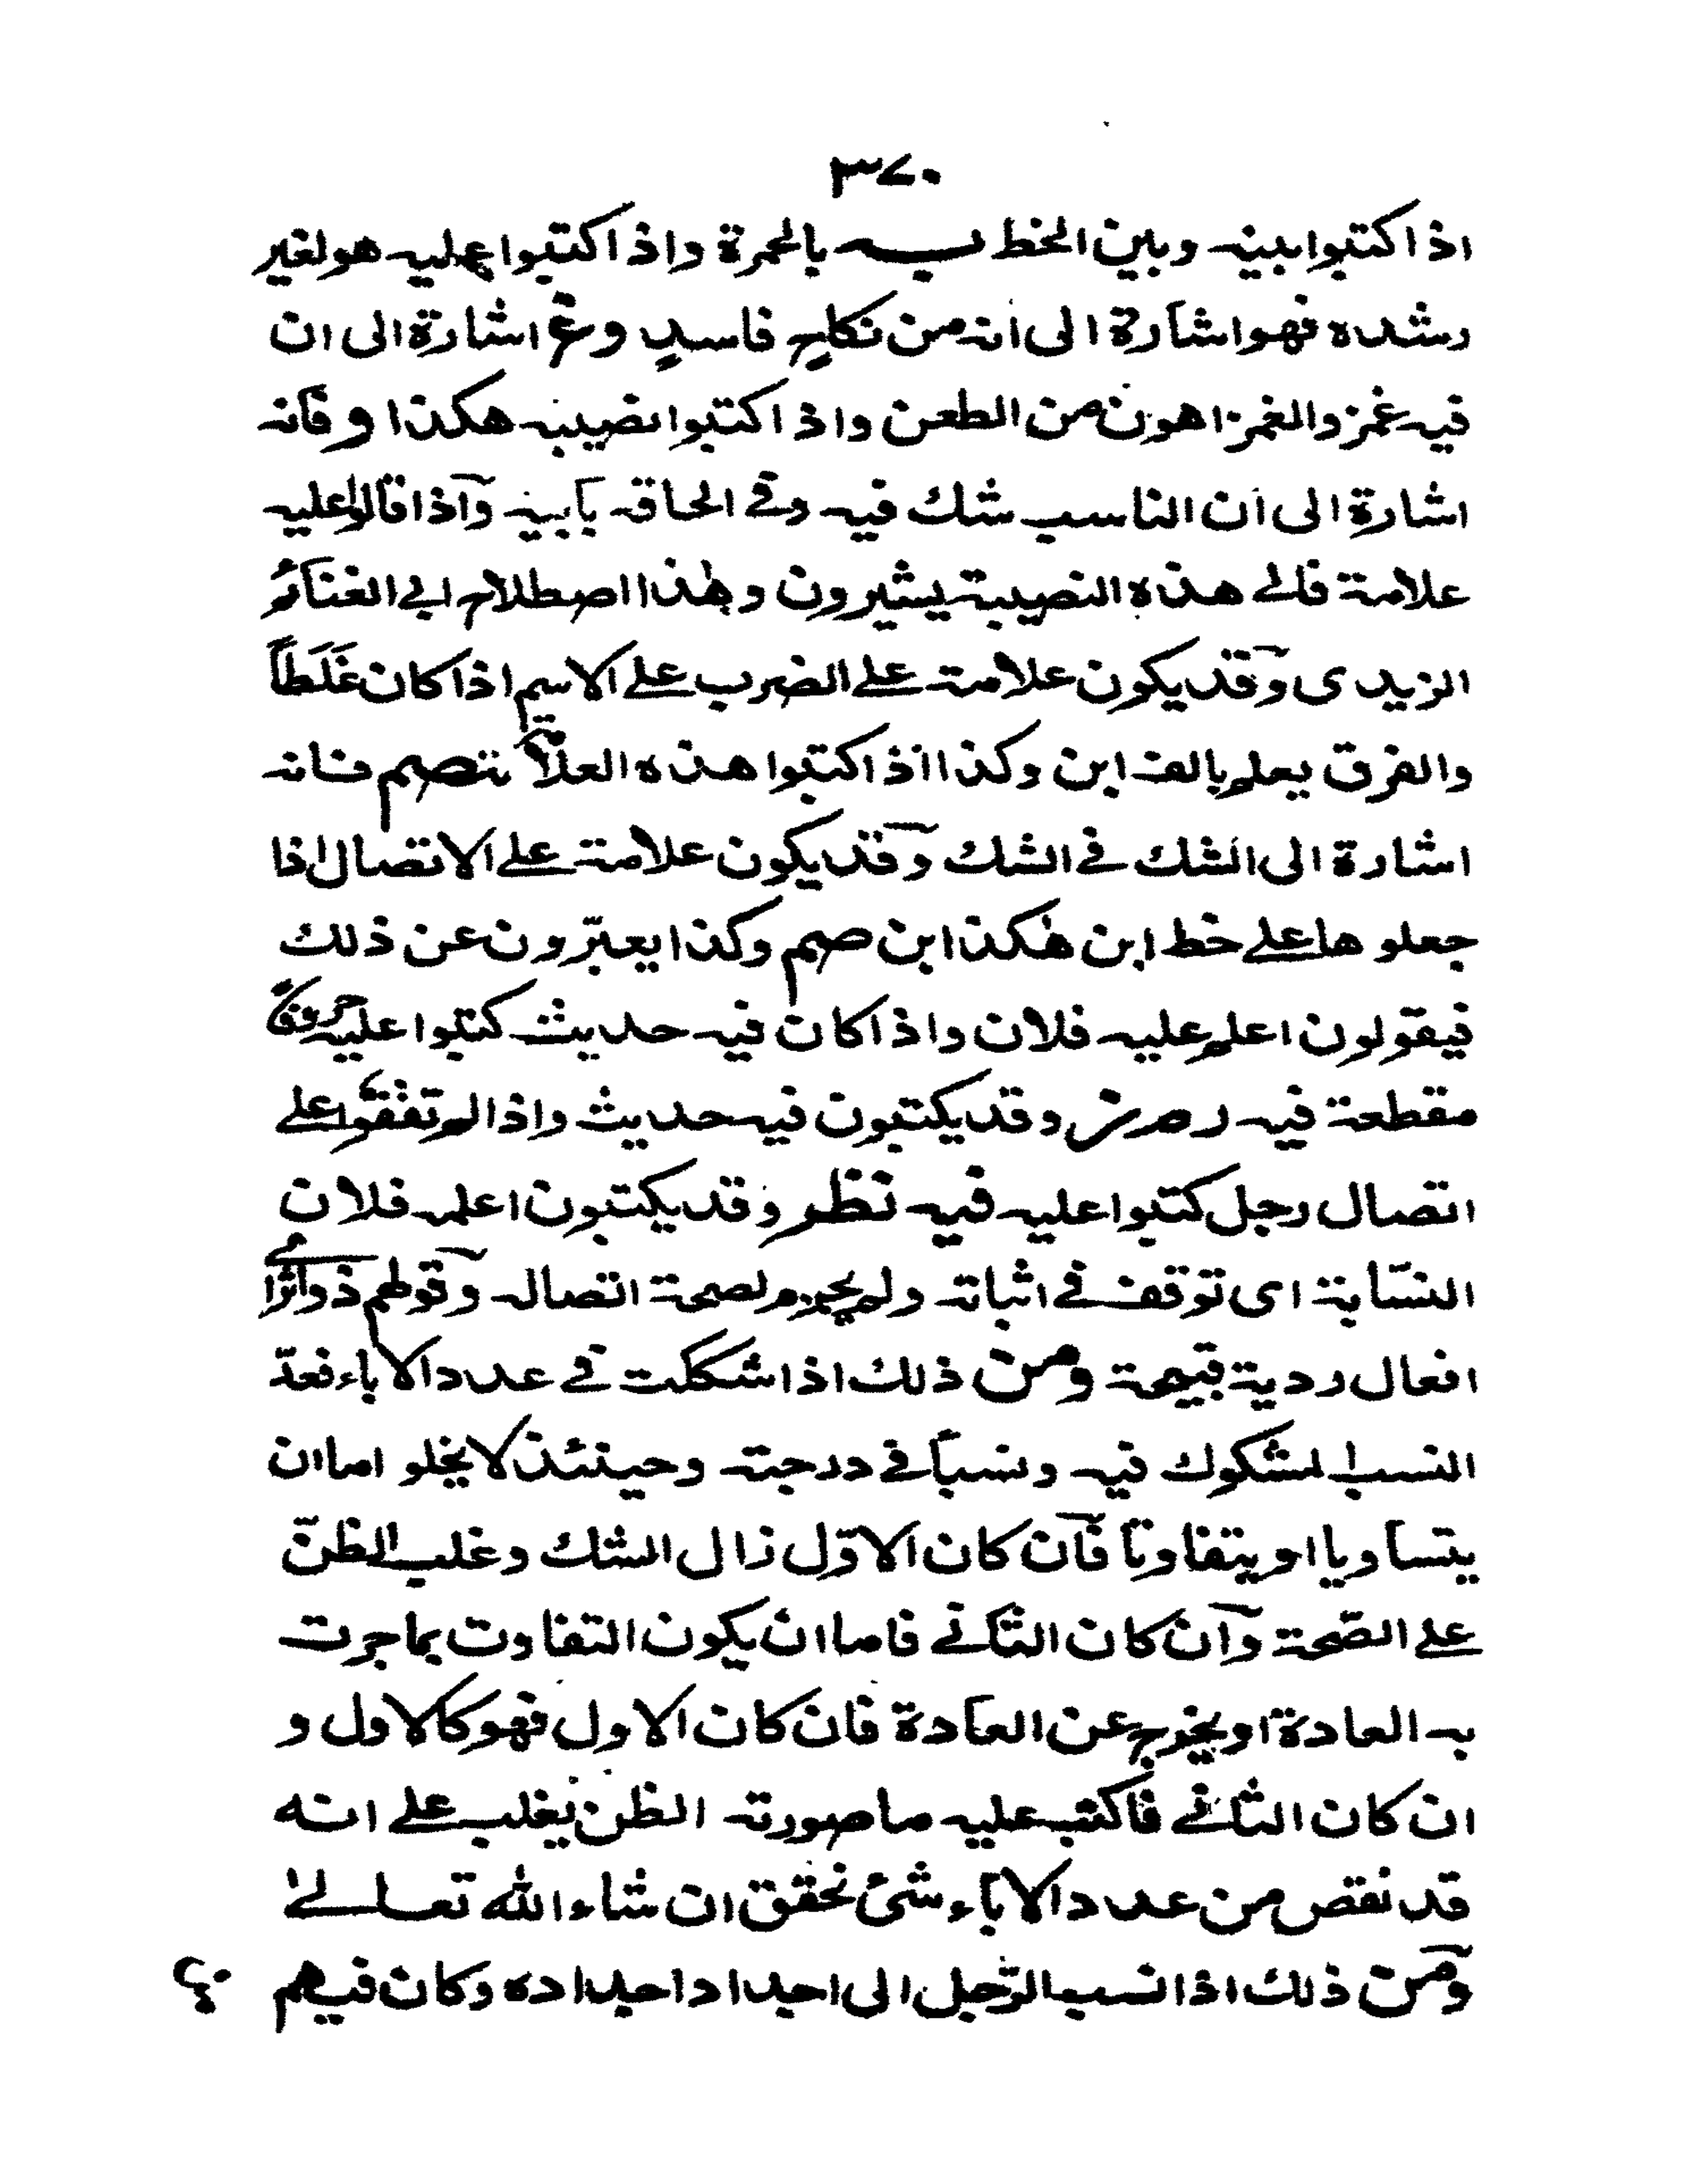 ٣٧٠
اذا كتبوا بينه وبين الخط ـــ بالحمرة واذا كتبوا عليه هو لغير
رشده فهو اشارة الى انه من نكاح فاسد وغ اشارة الى ان
فيه غمز والغمز اهون من الطعن واذا كتبوا نصيبه هكذا و فانه
اشارة الى ان الناسب شك فيه وفي الحاقه بابيه وآذا قالوا عليه
علامة فالى هذه النصيبة يشيرون وهٰذا اصطلاح ابي الغنائم
الزيدى وقد يكون علامة على الضرب على الاسم اذا كان غَلَطاً
والفرق يعلم بالف ابن وكذا اذا كتبوا هذه العلامة صم فانه
اشارة الى الشك في الشك وقد يكون علامة على الاتصال اذا
جعلوها على خط ابن هٰكذا ابن صم وكذا يعبّرون عن ذلك
فيقولون اعلم عليه فلان واذا كان فيه حديث كتبوا عليه حروفاً
مقطعة فيه رمز وقد يكتبون فيه حديث واذا لم تفقوا على
اتصال رجل كتبوا عليه فيه نظر وقد يكتبون اعلمه فلان
النسّابة اى توقف في اثباته ولم يجزم لصحة اتصاله وقولهم ذو اثر اى
افعال ردية قبيحة ومن ذلك اذا شككت في عدد الاباء فعدّ
النسب المشكوك فيه ونسباً في درجته وحينئذ لا يخلو اما ان
يتساويا او يتفاوتا فآن كان الاوّل زال الشك وغلب الظن
على الصّحة وآن كان الثاني فاما ان يكون التفاوت بما جرت
به العادة او يخرج عن العادة فان كان الاول فهو كالاول و
ان كان الثاني فاكتب عليه ما صورته الظن يغلب على انه
قد نقص من عدد الاباء شئ نحقق ان شاء الله تعالىٰ
ومن ذلك اذا نسب الرّجل الى احد اد احداده وكان فيهم